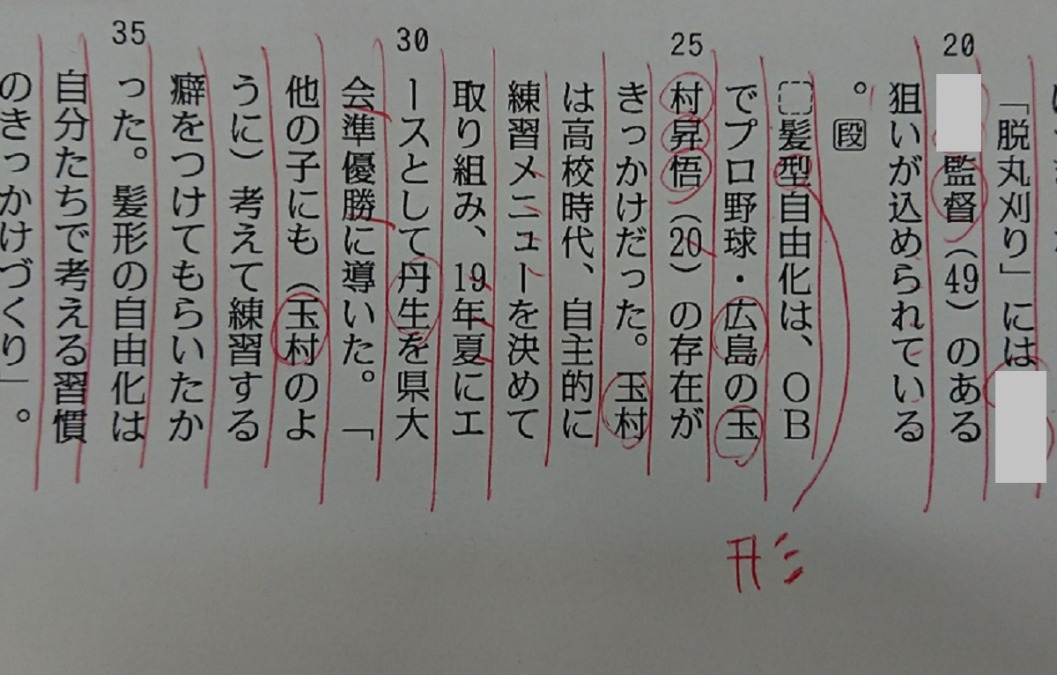 「脱丸刈り」には
20
監督（49）のある
狙いが込められている
。段
髪型自由化は、ＯＢ
でプロ野球・広島の玉
25
村昇悟（20）の存在が
きっかけだった。玉村
は高校時代、自主的に
練習メニューを決めて
取り組み、19年夏にエ
30
ースとして丹生を県大
会準優勝に導いた。「
他の子にも（玉村のよ
うに）考えて練習する
癖をつけてもらいたか
35
った。髪形の自由化は
自分たちで考える習慣
のきっかけづくり」。
形